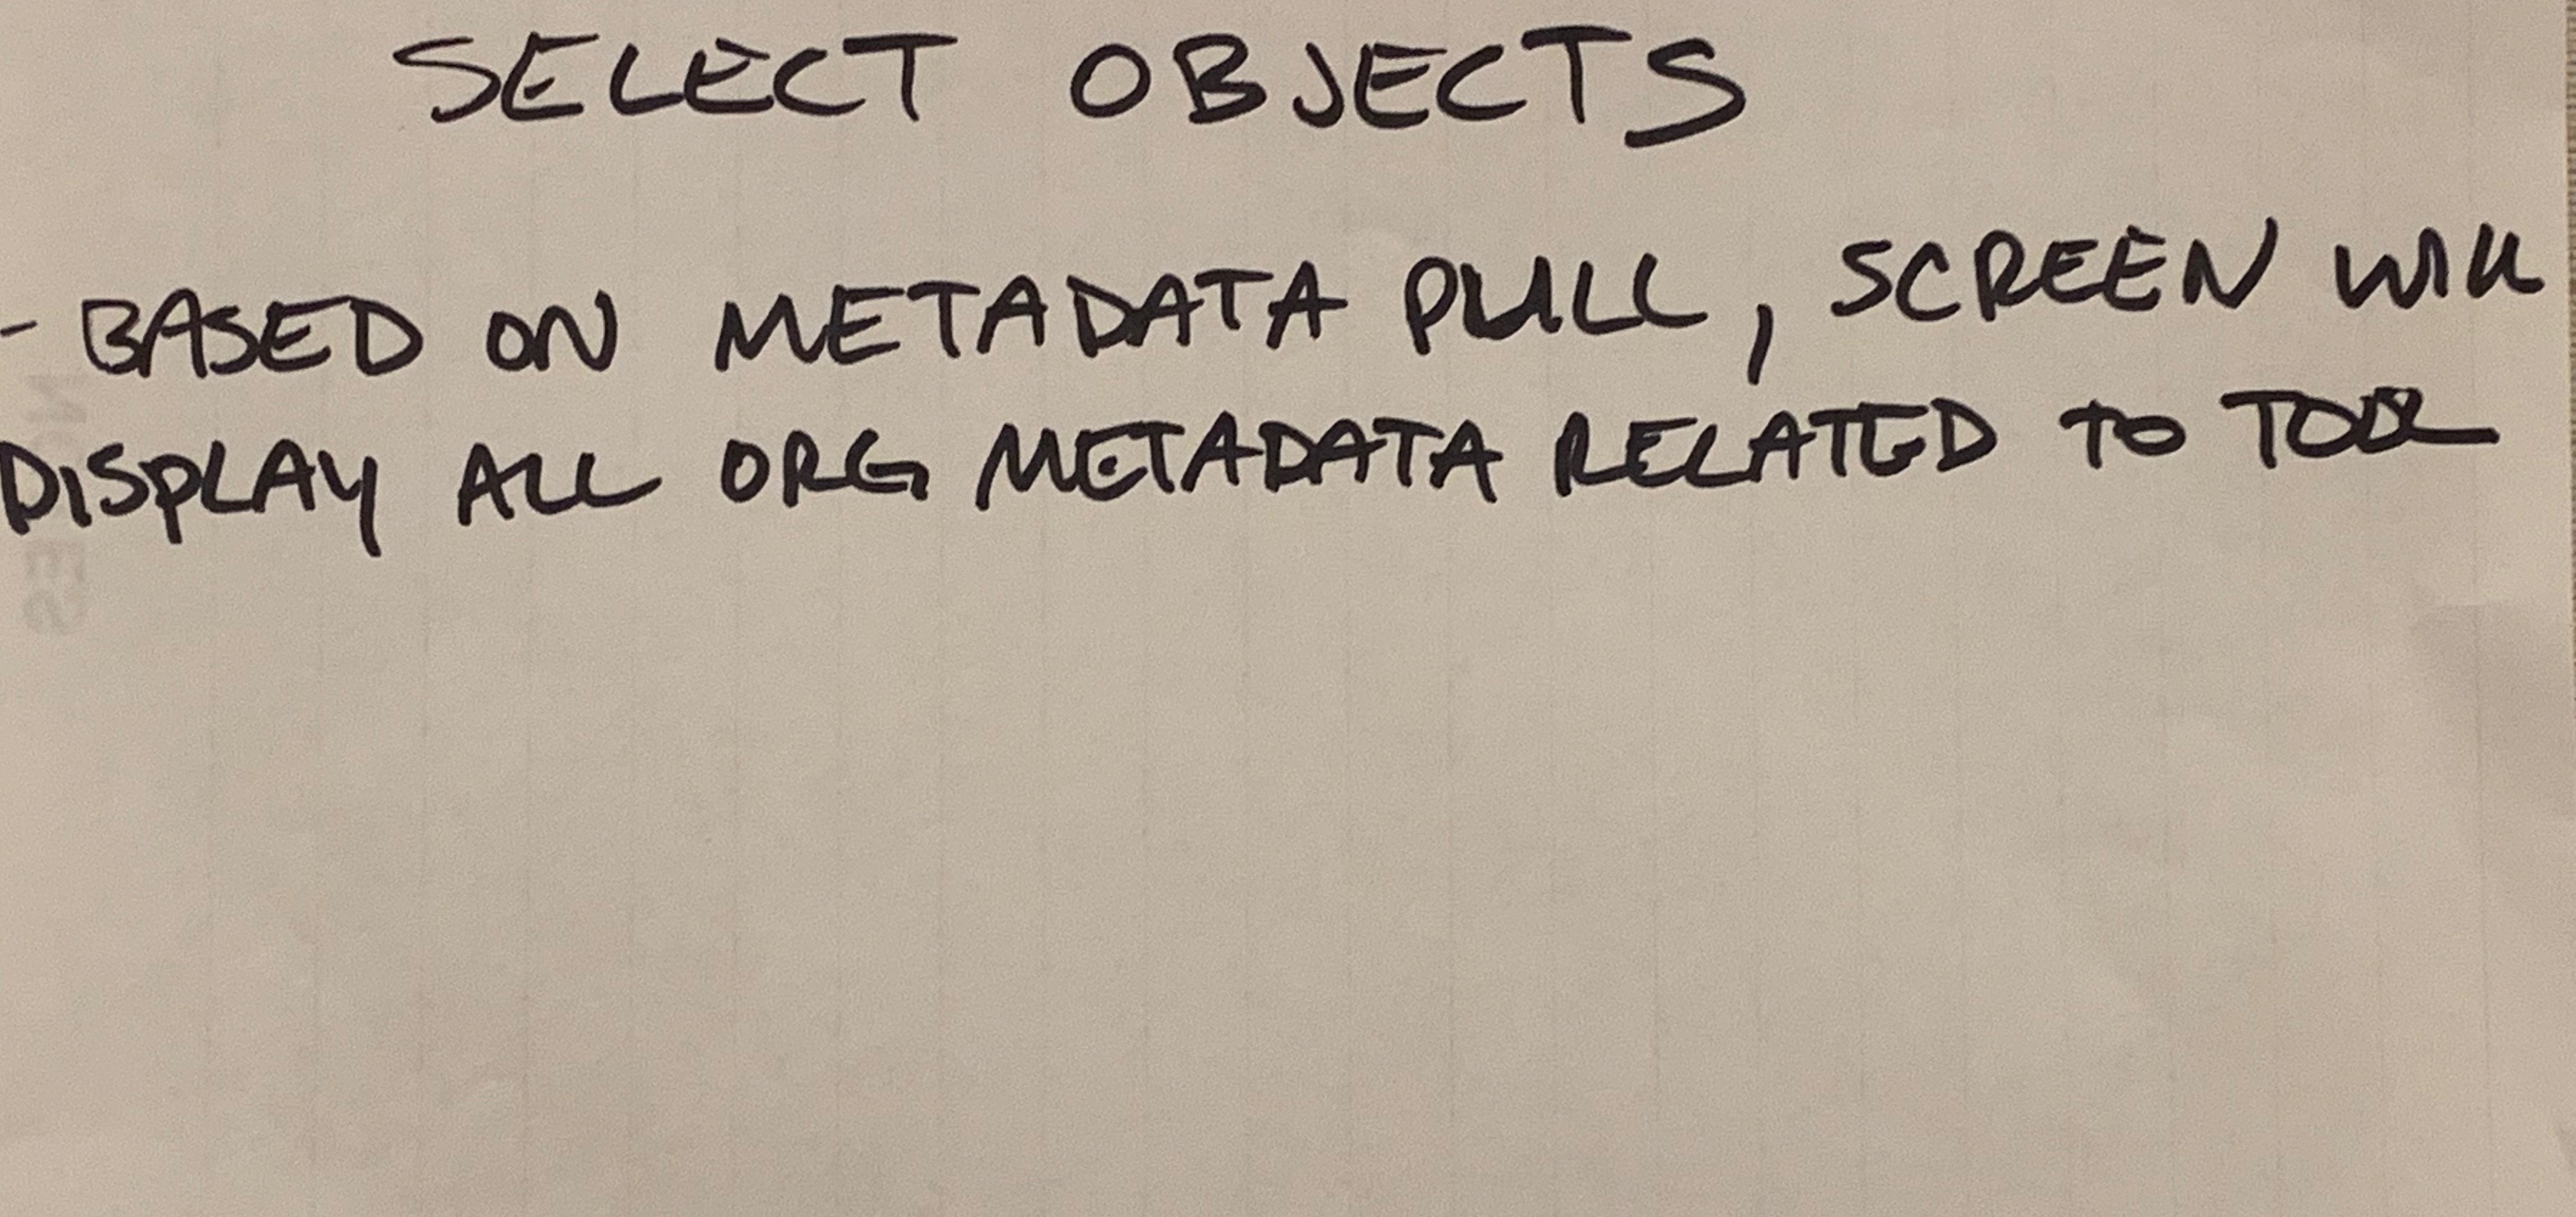 SELECT OBJECTS
- BASED ON METADATA PULL, SCREEN WILL
DISPLAY ALL ORG METADATA RELATED TO TOOL
NOTES